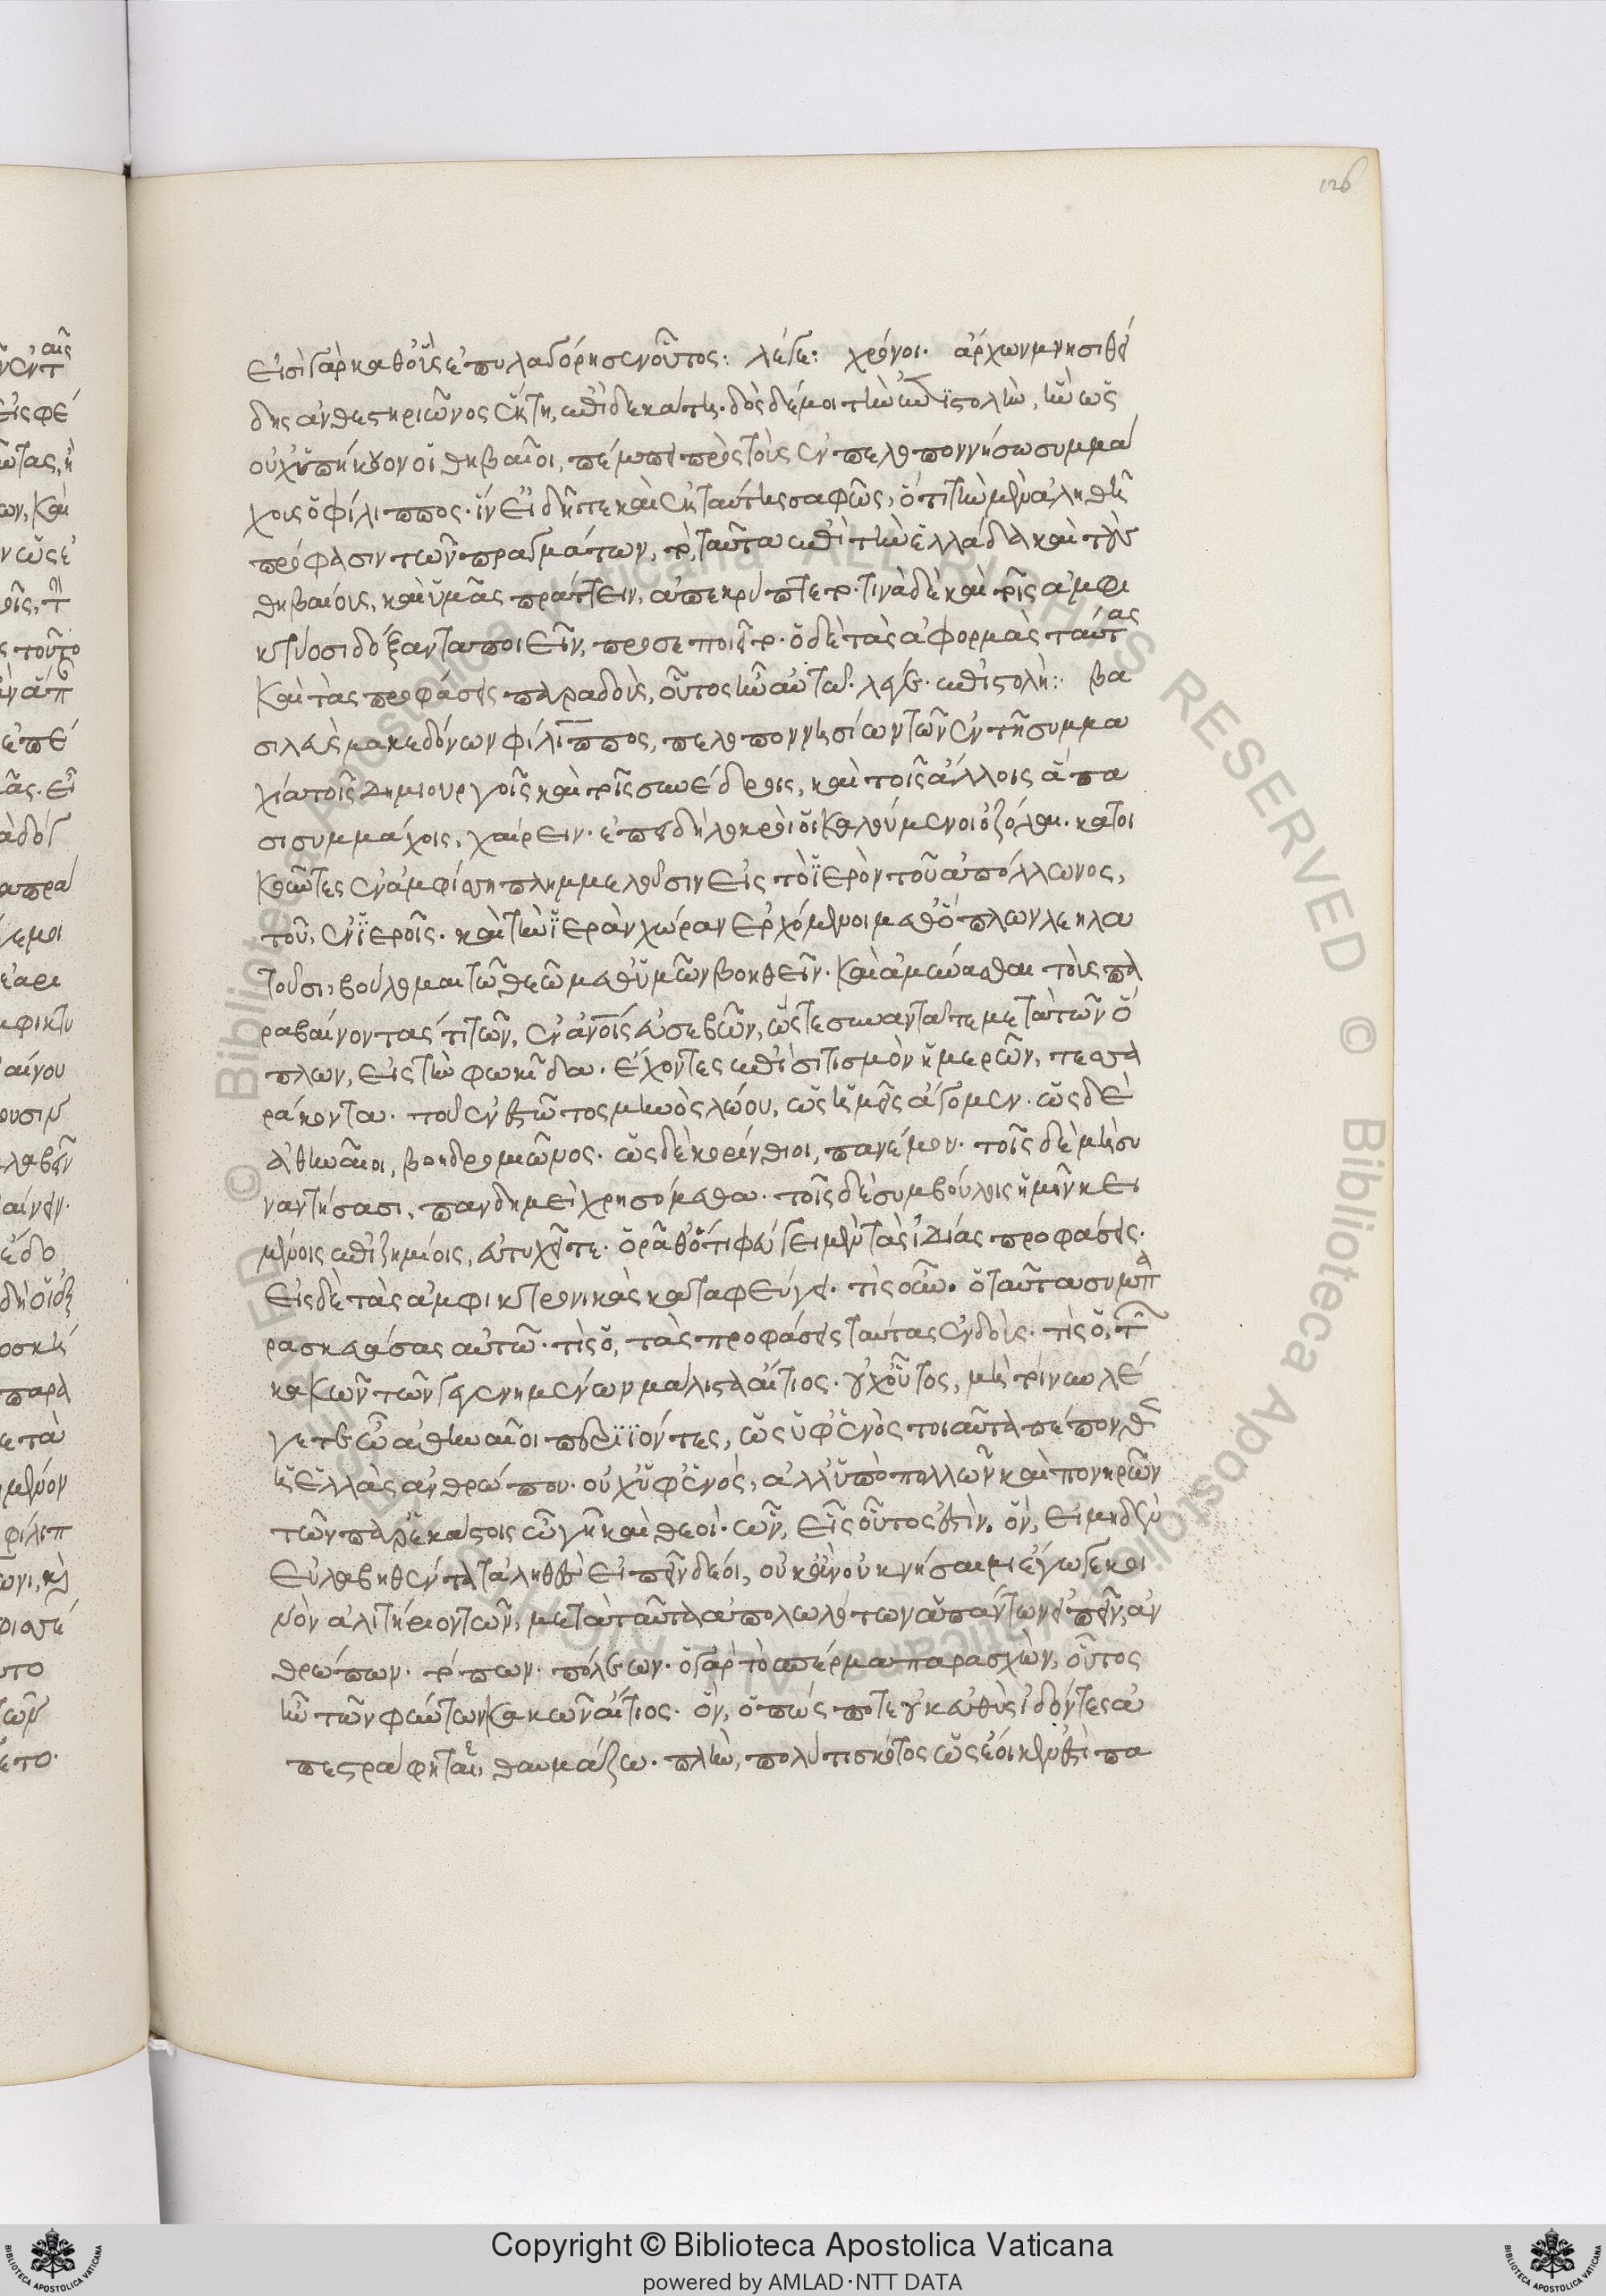 126
εἰσὶ γὰρ καθ' οὓς ἐπυλαγόρησεν οὗτος: λέγε: χρόνοι. ἄρχων μνησιθεί
δης ἀνθεστηριῶνος ἕκτῃ ἐπὶ δεκάτῃ. δὸς δέ μοι τὴν ἐπιστολὴν, ἣν ὡς
οὐχ ὑπήκουον οἱ θηβαῖοι, πέμπει πρὸς τοὺς ἐν πελοποννήσω συμμά
χους ὁ φίλιππος. ἵν' εἰδῆτε καὶ ἐκ ταύτης σαφῶς, ὅτι τὴν μὲν ἀληθῆ
πρόφασιν τῶν πραγμάτων, τὸ ταῦτα ἐπὶ τὴν ἑλλάδα καὶ τοὺς
θηβαίους, καὶ ὑμᾶς πράττειν, ἀπεκρύπτετο. κοινὰ δὲ καὶ τοῖς ἀμφι
κτύοσι δόξαντα ποιεῖν, προσεποιεῖτο. ὁ δὲ τὰς ἀφορμὰς ταύτας
καὶ τὰς προφάσεις παραδοὺς, οὗτος ἦν αὐτῶ. λέγε. ἐπιστολή: βα
σιλεὺς μακεδόνων φίλιππος, πελοποννησίων τῶν ἐν τῇ συμμα
χία τοῖς δημιουργοῖς καὶ τοῖς συνέδροις, καὶ τοῖς ἄλλοις ἅπα
σι συμμάχοις, χαίρειν. ἐπειδὴ λοκροὶ οἱ καλούμενοι ὀζόλαι. κατοι
κοῦντες ἐν ἀμφίσση πλημμελοῦσιν εἰς τὸ ἱερὸν τοῦ ἀπόλλωνος,
τοῦ, ἐν ἱεροῖς. καὶ τὴν ἱερὰν χώραν ἐρχόμενοι μεθ' ὅπλων λεηλα
τοῦσι, βούλομαι τῶ θεῶ μεθ' ὑμῶν βοηθεῖν. καὶ ἀμύνασθαι τοὺς πα
ραβαίνοντάς τι τῶν, ἐν ἀνοις εὐσεβῶν, ὥστε συναντᾶτε μετὰ τῶν ὅ
πλων, εἰς τὴν φωκίδα. ἔχοντες ἐπισιτισμὸν ἡμερῶν, τεσσα
ράκοντα. τοῦ ἐνεστῶτος μηνὸς λώου, ὡς ἡμεῖς ἄγομεν. ὡς δὲ
ἀθηναῖοι, βοηδρομιῶνος. ὡς δὲ κορίνθιοι, πανέμου. τοῖς δὲ μὴ συ
ναντήσασι, πανδημεὶ χρησόμεθα. τοῖς δὲ συμβούλοις ἡμῖν κει
μένοις ἐπιζημίοις, εὐτυχεῖτε. ὁρᾶθ' ὅτι φεύγει μὲν τὰς ἰδίας προφάσεις.
εἰς δὲ τὰς ἀμφικτυονικὰς καταφεύγει. τίς οὖν. ὁ ταῦτα συμπα
ρασκευάσας αὐτῶ. τίς ὁ, τὰς προφάσεις ταύτας ἐνδούς. τίς ὁ, τῶν
κακῶν τῶν γεγενημένων μάλιστα αἴτιος. οὐχ οὗτος, μὴ τοίνυν λέ
γετε ὦ ἀθηναῖοι περιϊόντες, ὡς ὑφ' ἑνὸς τοιαῦτα πέπονθεν
ἡ ἑλλὰς ἀνθρώπου. οὐχ ὑφ' ἑνὸς, ἀλλ' ὑπὸ πολλῶν καὶ πονηρῶν
τῶν παρ' ἑκάστοις ὦ γῆ καὶ θεοί. ὧν, εἷς οὗτος ἐστίν. ὃν, εἰ μηδὲν
εὐλαβηθέντα τἀληθὲς εἰπεῖν δέοι, οὐκ ἂν ὀκνήσαιμι ἔγωγε κοι
νὸν ἀλιτήριον τῶν, μετὰ ταῦτα ἀπολωλότων ἁπάντων εἰπεῖν, ἀν
θρώπων. τόπων. πόλεων. ὁ γὰρ τὸ σπέρμα παρασχὼν, οὗτος
ἦν τῶν φύντων κακῶν αἴτιος. ὃν, ὅπως ποτὲ οὐκ εὐθὺς ἰδόντες ἀ
πεστράφητε, θαυμάζω. πλὴν, πολύ τι σκότος ὡς ἔοικεν ἐστὶ πα